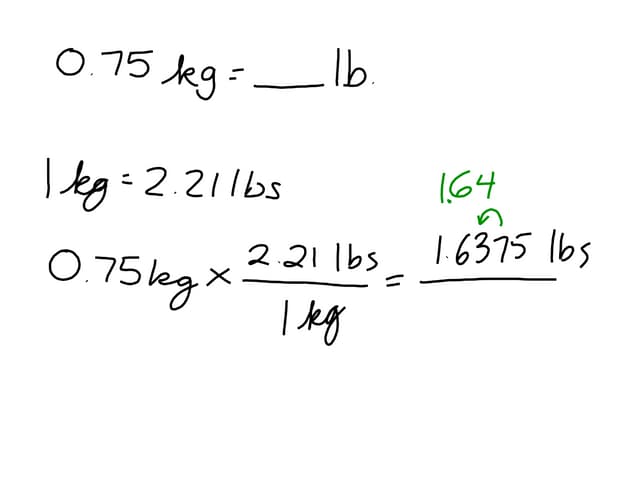 0.75 kg = ___ lb.
1 kg = 2.21 lbs
1.64
0.75 kg × 2.21 lbs / 1 kg = 1.6375 lbs